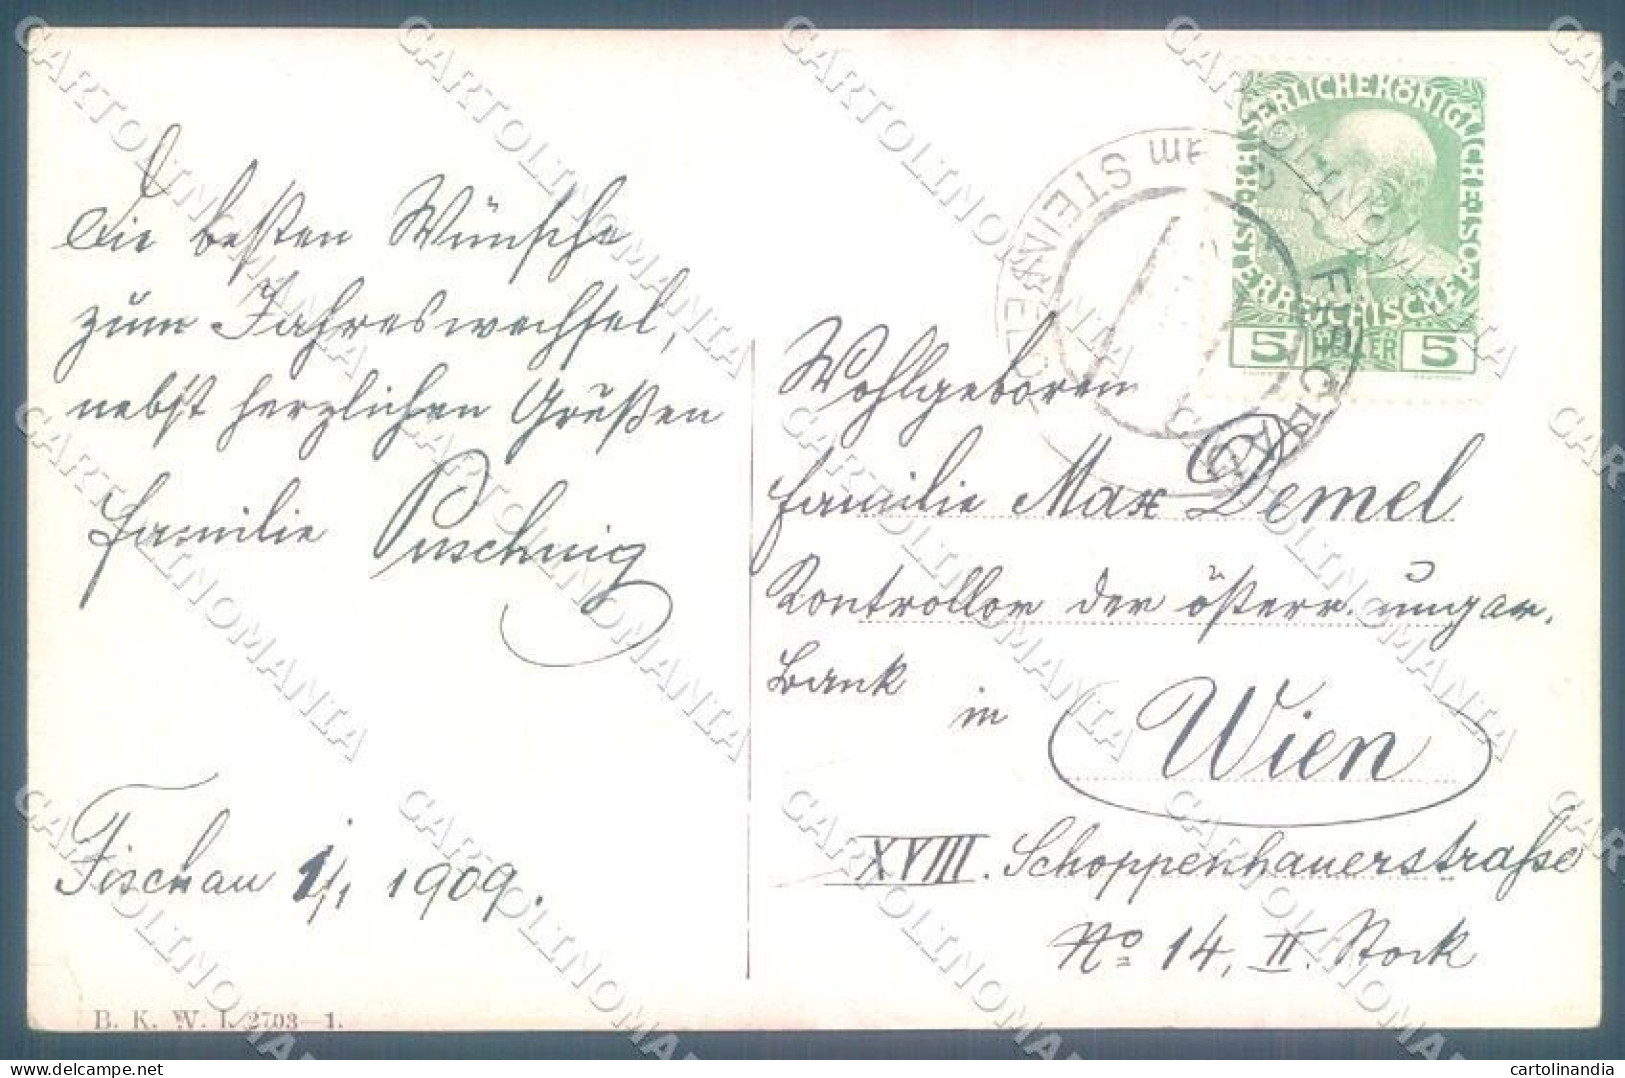 Die besten Wünsche
zum Jahreswechsel,
nebst herzlichen Grüßen
Familie Puschnig
Fischau 1/1 1909.
B. K. W. I. 2703-1.
KAISERLICHE KÖNIGLICHE ÖSTERREICHISCHE POST
1908
5 HELLER 5
FISCHAU am STEINFELD
Wohlgeboren
Familie Max Demel
Kontrollor der österr. ungar.
Bank
in Wien
XVIII. Schoppenhauerstraße
No 14, II. Stock
CARTOLINOMANIA
cartolinandia